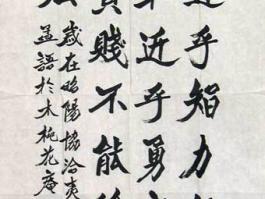 乎智力
近乎勇
賤不能移
歲在昭陽協洽夷
孟語於木桃花庵